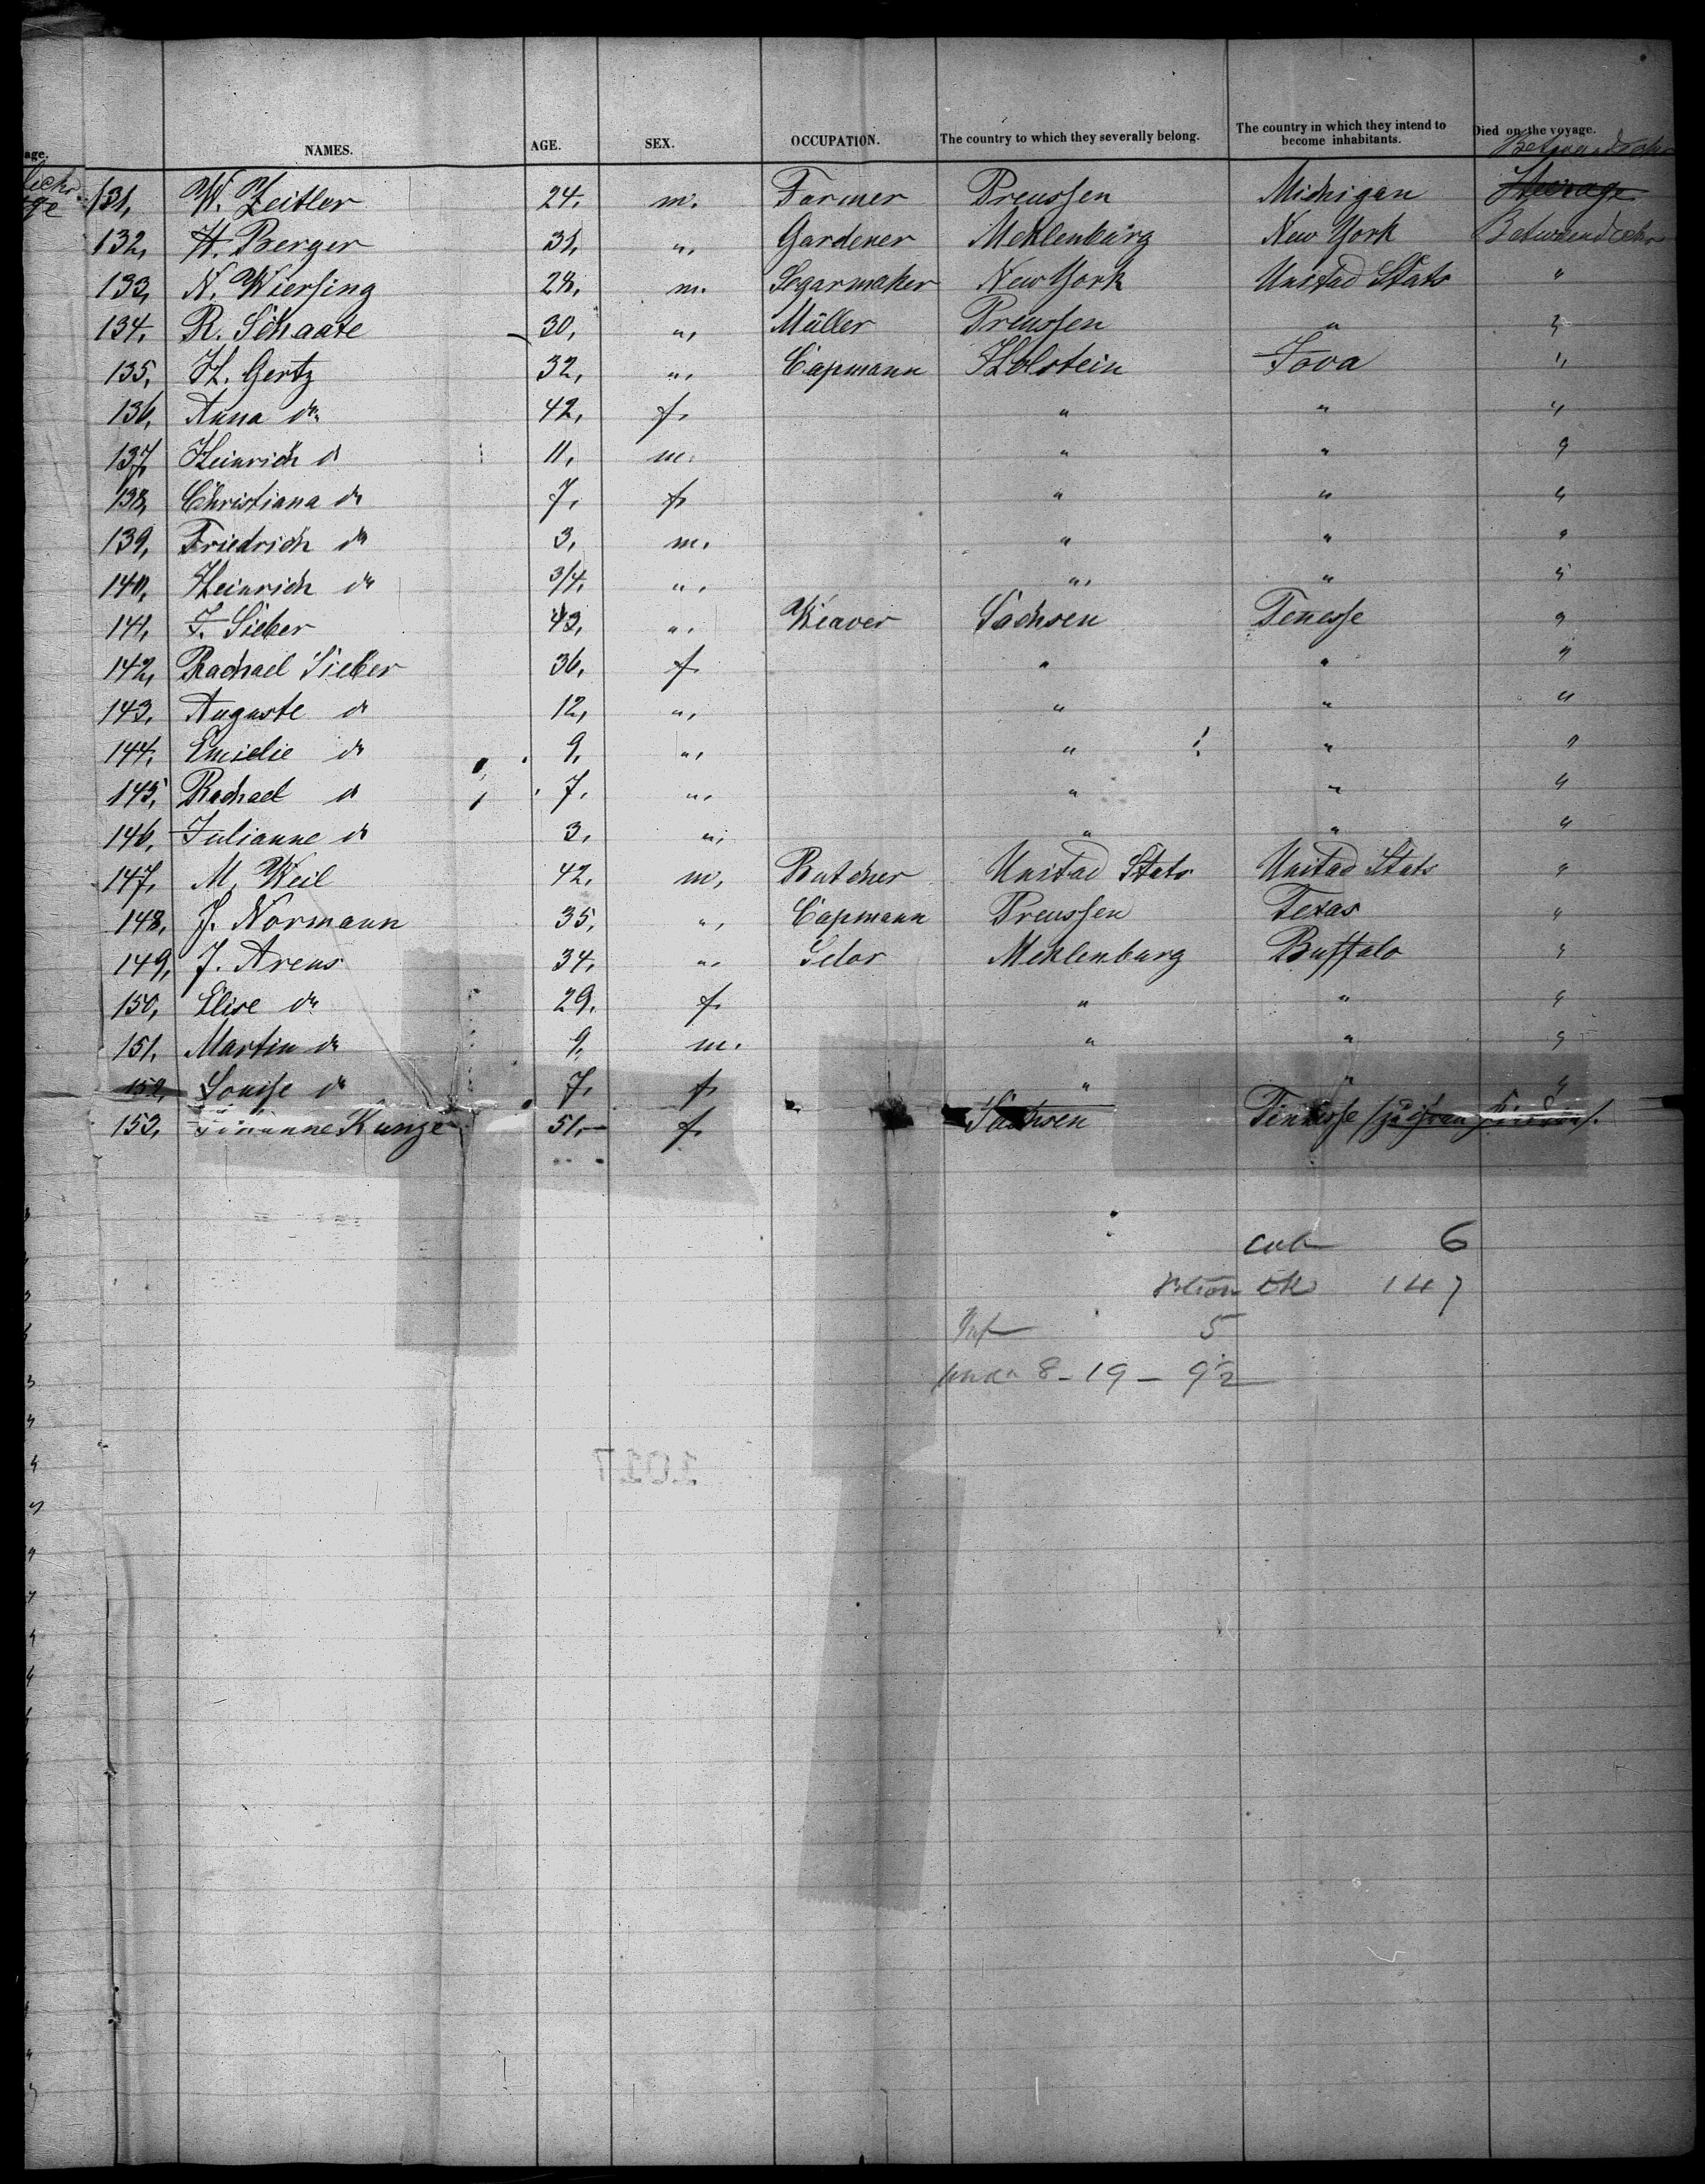 age.
NAMES. AGE. SEX. OCCUPATION. The country to which they severally belong. The country in which they intend to become inhabitants. Died on the voyage.
131, W. Zeitler 24. m. Farmer Preussen Michigan Steerage
132, H. Berger 31, " Gardener Mehlenburg New York
133, N. Wiersing 28, m. Segarmaker New York Unitad Stats "
134. R. Schaate 30, " Müller Preussen " "
135, H. Gertz 32, " Capmann Holstein Iova "
136, Anna do 42, f. " " "
137, Heinrich do 11, m. " " "
138, Christiana do 7, f. " " "
139, Friedrich do 3, m. " " "
140, Heinrich do 3/4, " " " "
141, F. Sieber 43, " Weaver Sachsen Tenesse "
142, Rachael Sieber 36, f. " " "
143, Auguste do 12, " " " "
144, Emielie do 9, " " " "
145, Rachael do 7, " " " "
146, Julianne do 3, " " " "
147, M. Weil 42, m. Butcher Unitad Stats Unitad Stats "
148, J. Normann 35, " Capmann Preussen Texas "
149, J. Arens 34, " Selor Mehlenburg Buffalo "
150, Elise do 29, f. " " "
151, Martin do 9, m. " " "
152, Louise do 7, f. " " "
153, Kunze 51, f. Sachsen Tennesse
cab 6
147
Inf 5
8-19-92
1017